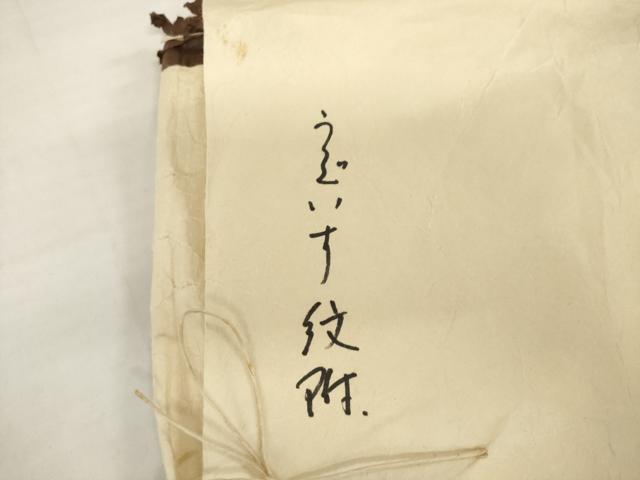 うぐいす紋附.